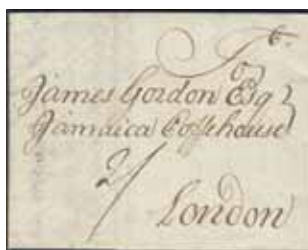 To
James Gordon Esq
Jamaica Coffehouse
2/
London